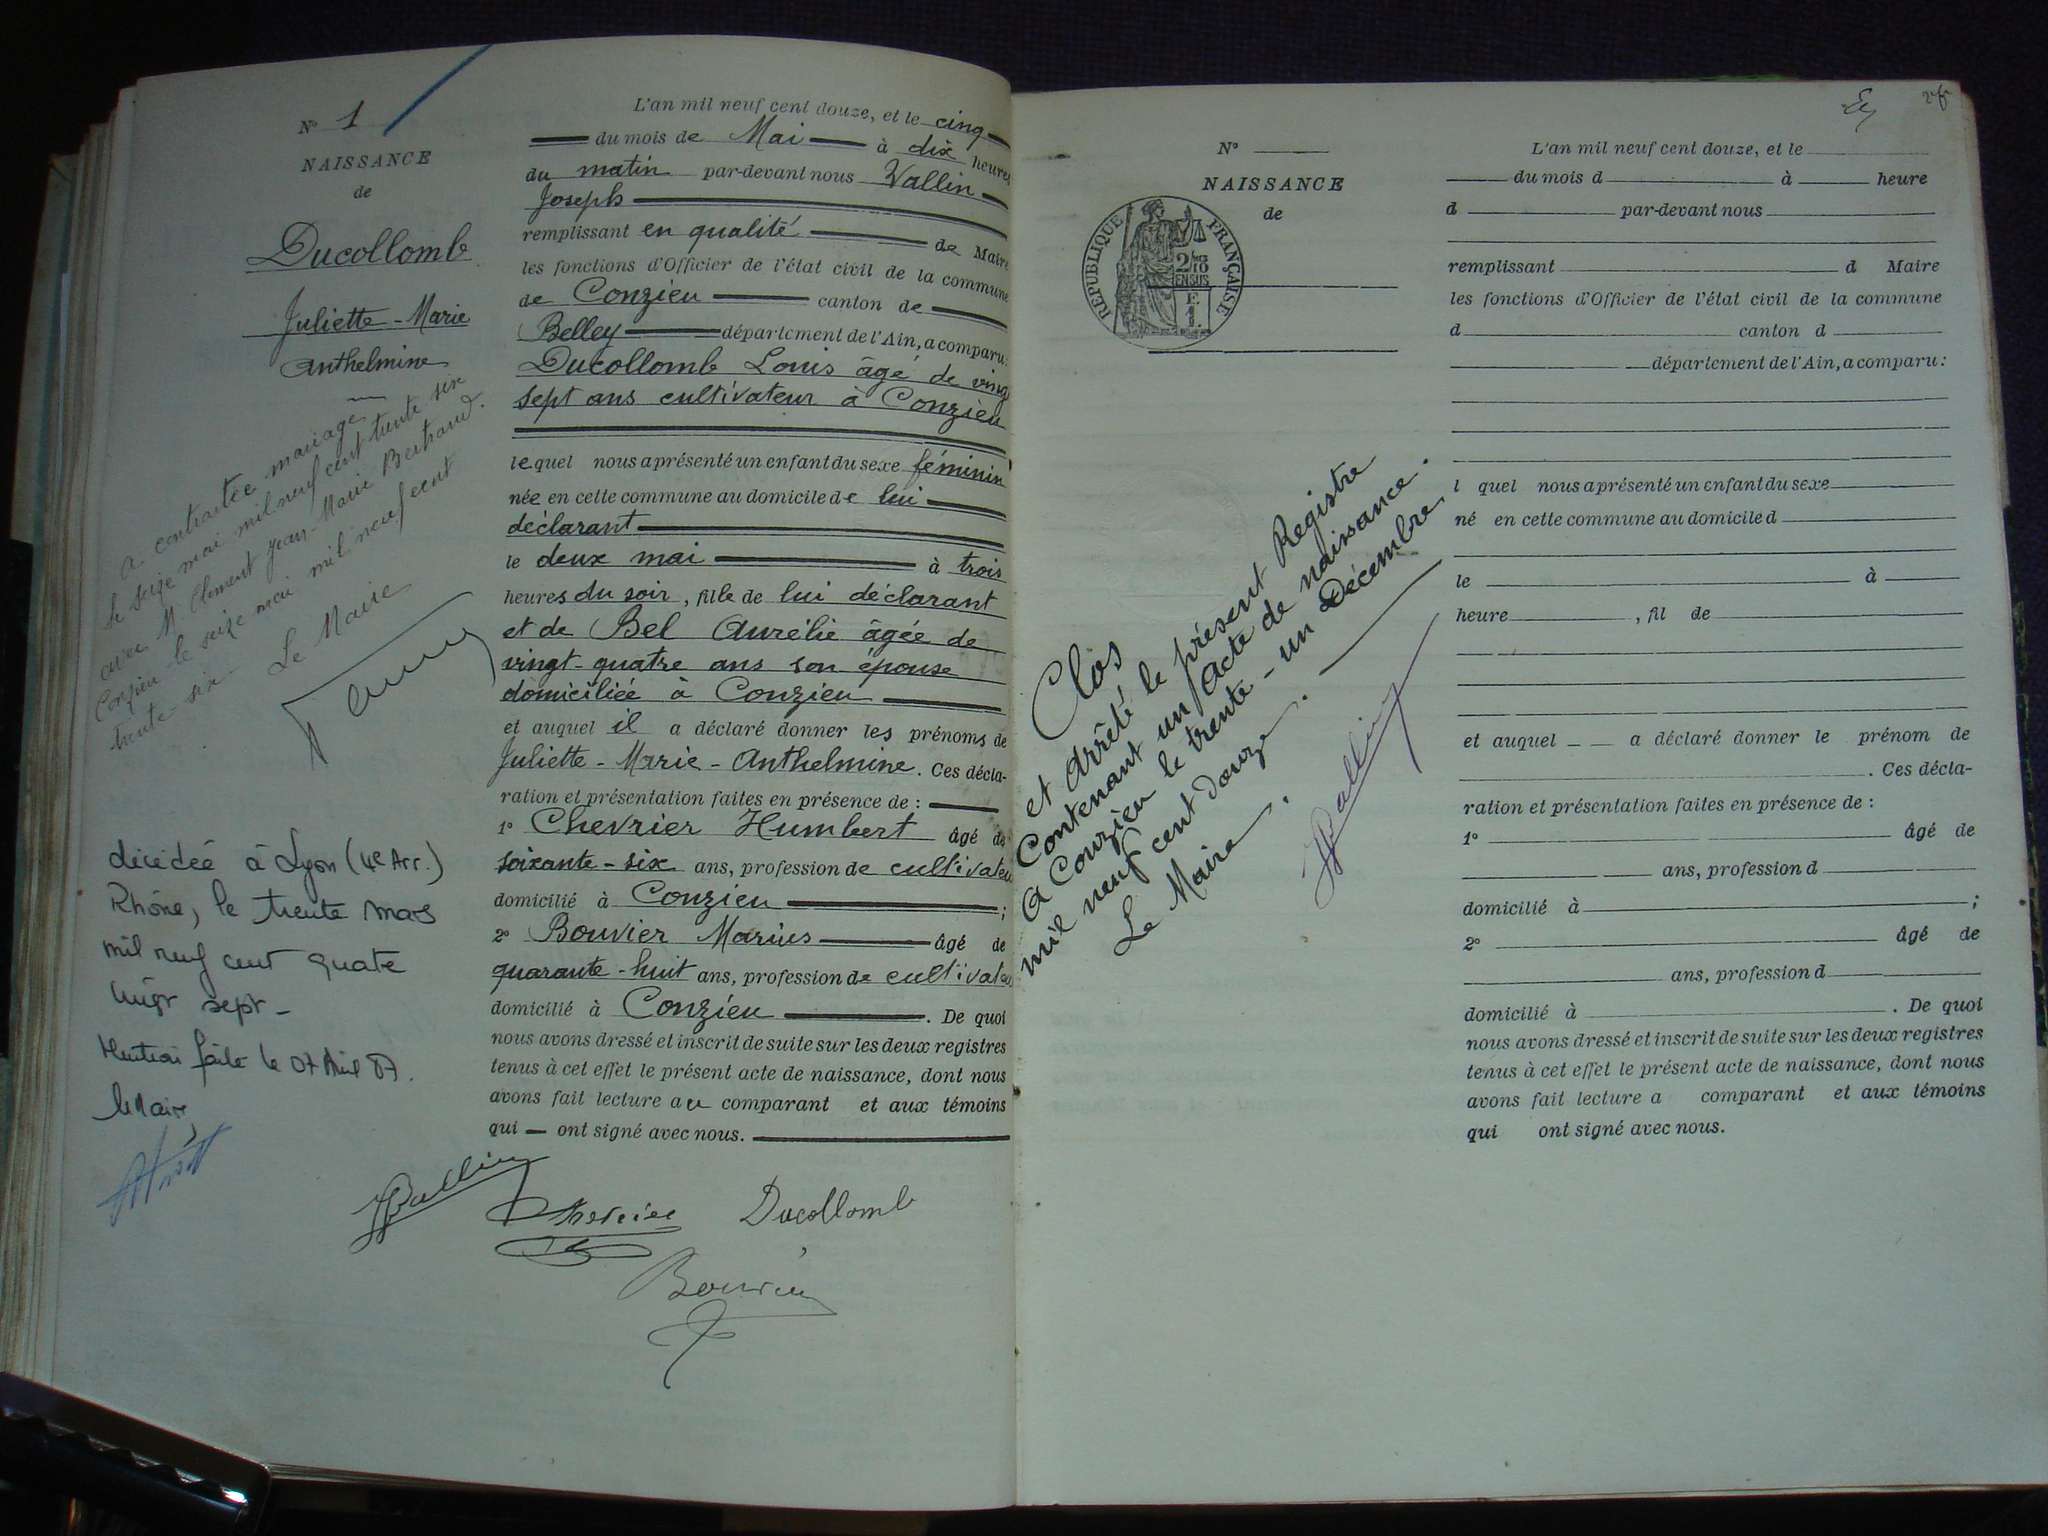 N° 1
NAISSANCE
de
Ducollomb
Juliette-Marie
Anthelmine
a contractée mariage
le seize mai mil neuf cent trente six
avec M. Clément Jean-Marie Bertrand.
Conzieu le seize mai mil neuf cent
trente-six Le Maire
décédée à Lyon (4e Arr.)
Rhône, le trente mars
mil neuf cent quatre
vingt sept -
Mention faite le 07 Avril 87.
le Maire,
L'an mil neuf cent douze, et le cinq
du mois de Mai à dix heures
du matin par-devant nous Vallin
Joseph
remplissant en qualité de Maire
les fonctions d'Officier de l'état civil de la commune
de Conzieu canton de
Belley département de l'Ain, a comparu:
Ducollomb Louis âgé de vingt
sept ans cultivateur à Conzieu
lequel nous a présenté un enfant du sexe féminin
née en cette commune au domicile de lui
déclarant
le deux mai à trois
heures du soir, fille de lui déclarant
et de Bel Aurélie âgée de
vingt-quatre ans son épouse
domiciliée à Conzieu
et auquel il a déclaré donner les prénoms de
Juliette-Marie-Anthelmine. Ces décla-
ration et présentation faites en présence de :
1° Chevrier Humbert âgé de
soixante-six ans, profession de cultivateur
domicilié à Conzieu ;
2° Bouvier Marius âgé de
quarante-huit ans, profession de cultivateur
domicilié à Conzieu . De quoi
nous avons dressé et inscrit de suite sur les deux registres
tenus à cet effet le présent acte de naissance, dont nous
avons fait lecture au comparant et aux témoins
qui — ont signé avec nous.
JVallin
Chevrier Ducollomb
Bouvier
N°
NAISSANCE
de
RÉPUBLIQUE FRANÇAISE
2/10
EN SUS
Clos
et arrêté le présent Registre
Contenant un acte de naissance.
A Conzieu le trente-un Décembre
mil neuf cent douze.
Le Maire.
JVallin
L'an mil neuf cent douze, et le
du mois d à heure
d par-devant nous
remplissant d Maire
les fonctions d'Officier de l'état civil de la commune
d canton d
département de l'Ain, a comparu:
l quel nous a présenté un enfant du sexe
né en cette commune au domicile d
le à
heure , fil de
et auquel _ _ a déclaré donner le prénom de
. Ces décla-
ration et présentation faites en présence de :
1° âgé de
ans, profession d
domicilié à ;
2° âgé de
ans, profession d
domicilié à . De quoi
nous avons dressé et inscrit de suite sur les deux registres
tenus à cet effet le présent acte de naissance, dont nous
avons fait lecture a comparant et aux témoins
qui ont signé avec nous.